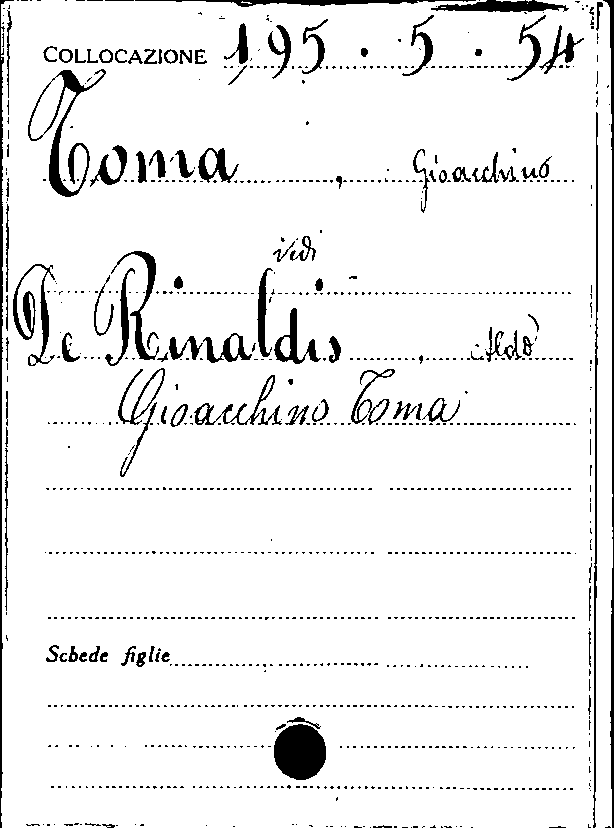 COLLOCAZIONE 195.5.54
Toma, Gioacchino
vedi
De Rinaldis, Aldo
Gioacchino Toma
Schede figlie